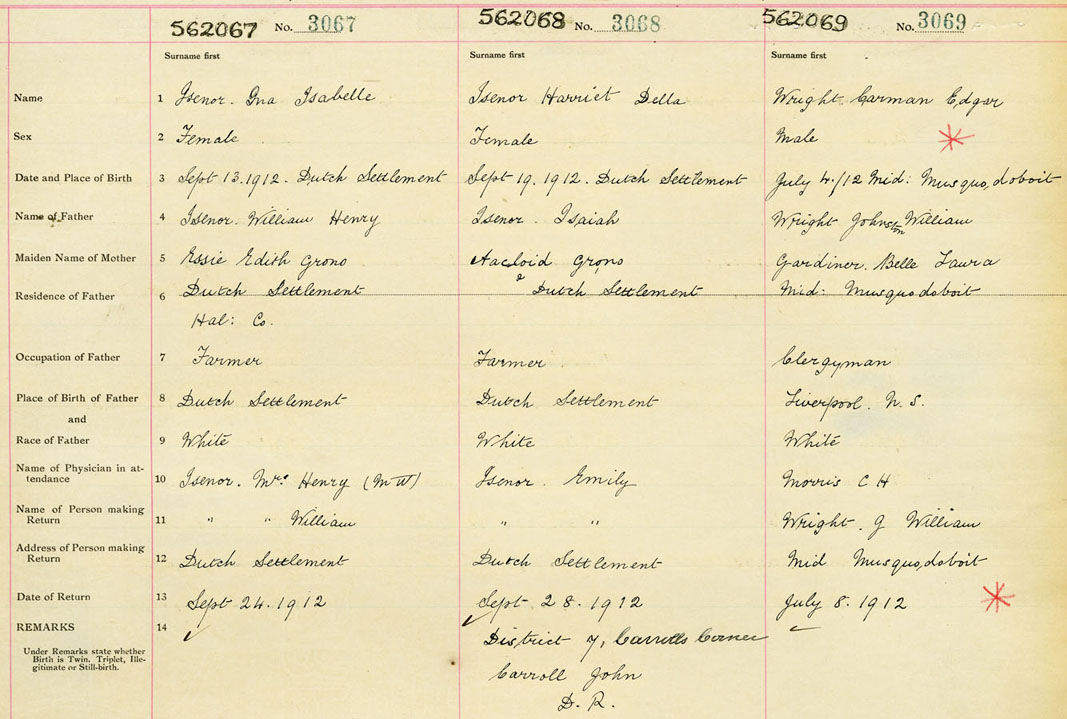 562067 No. 3067 562068 No. 3068 562069 No. 3069
Surname first Surname first Surname first
Name 1 Isenor. Ina Isabelle Isenor Harriet Della Wright Carman Edgar
Sex 2 Female Female Male
Date and Place of Birth 3 Sept 13.1912. Dutch Settlement Sept 19. 1912. Dutch Settlement July 4./12 Mid: Musquodoboit
Name of Father 4 Isenor. William Henry Isenor. Isaiah Wright Johnston William
Maiden Name of Mother 5 Essie Edith Grono Grono Gardiner. Belle Laura
Residence of Father 6 Dutch Settlement Dutch Settlement Mid: Musquodoboit
Hal: Co.
Occupation of Father 7 Farmer Farmer Clergyman
Place of Birth of Father 8 Dutch Settlement Dutch Settlement Liverpool. N. S.
and
Race of Father 9 White White White
Name of Physician in at-
tendance 10 Isenor. Mrs. Henry (MW) Isenor. Emily Morris C H
Name of Person making
Return 11 " " William " " Wright. J William
Address of Person making
Return 12 Dutch Settlement Dutch Settlement Mid Musquodoboit
Date of Return 13 Sept 24. 1912 Sept 28. 1912 July 8. 1912
REMARKS 14
Under Remarks state whether
Birth is Twin. Triplet, Ille-
gitimate or Still-birth.
District 7, Carrolls Corner
Carroll John
D. R.